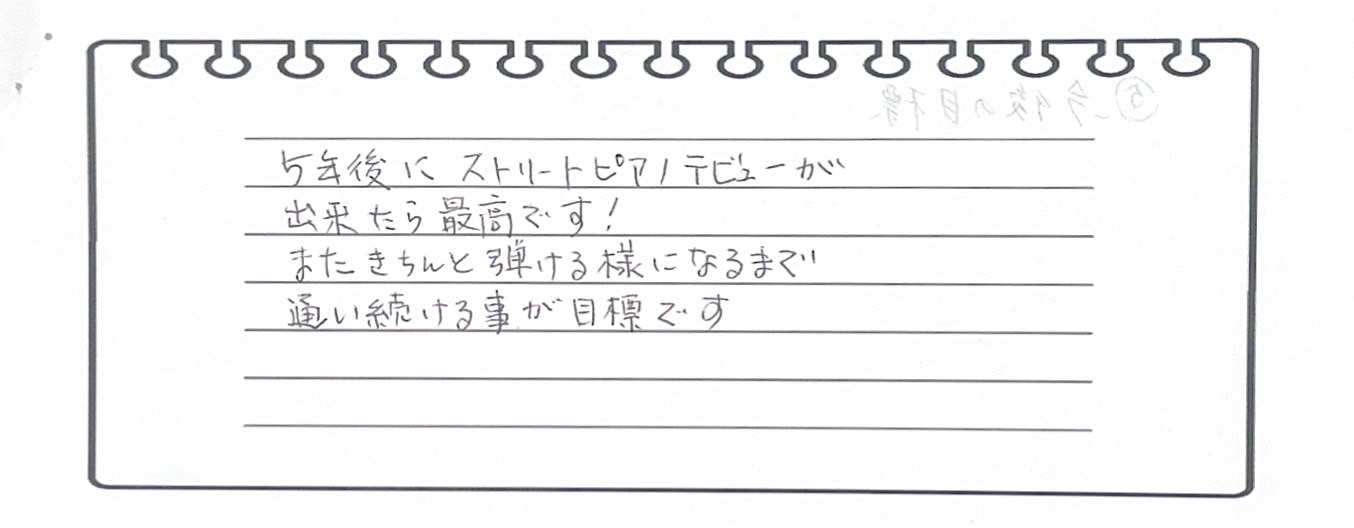 ⑤今後の目標
5年後にストリートピアノデビューが
出来たら最高です!
またきちんと弾ける様になるまで
通い続ける事が目標です